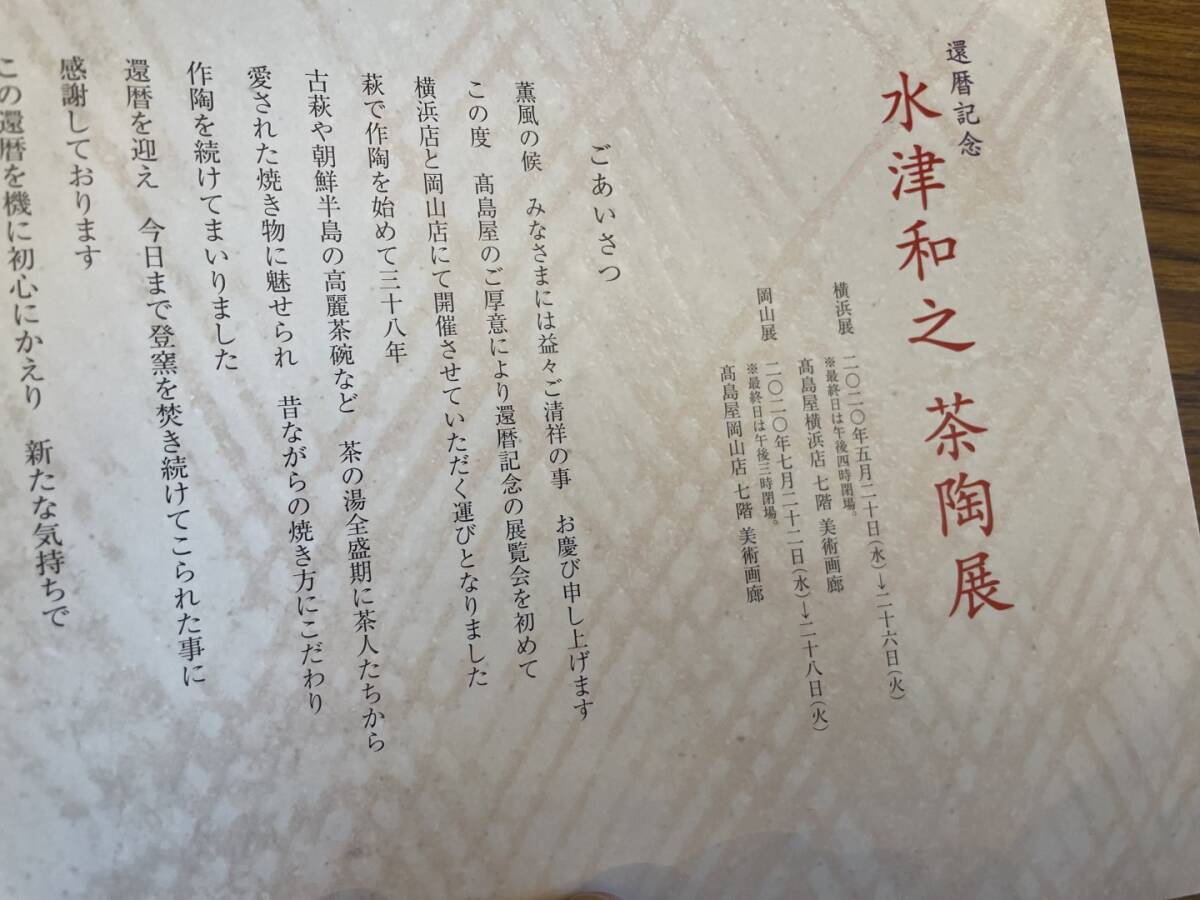 還暦記念
水津和之 茶陶展
横浜展 二〇二〇年五月二十日(水)→二十六日(火)
※最終日は午後四時閉場。
髙島屋横浜店 七階 美術画廊
岡山展 二〇二〇年七月二十二日(水)→二十八日(火)
※最終日は午後三時閉場。
髙島屋岡山店 七階 美術画廊
ごあいさつ
薫風の候 みなさまには益々ご清祥の事 お慶び申し上げます
この度 髙島屋のご厚意により還暦記念の展覧会を初めて
横浜店と岡山店にて開催させていただく運びとなりました
萩で作陶を始めて三十八年
古萩や朝鮮半島の高麗茶碗など 茶の湯全盛期に茶人たちから
愛された焼き物に魅せられ 昔ながらの焼き方にこだわり
作陶を続けてまいりました
還暦を迎え 今日まで登窯を焚き続けてこられた事に
感謝しております
この還暦を機に初心にかえり 新たな気持ちで